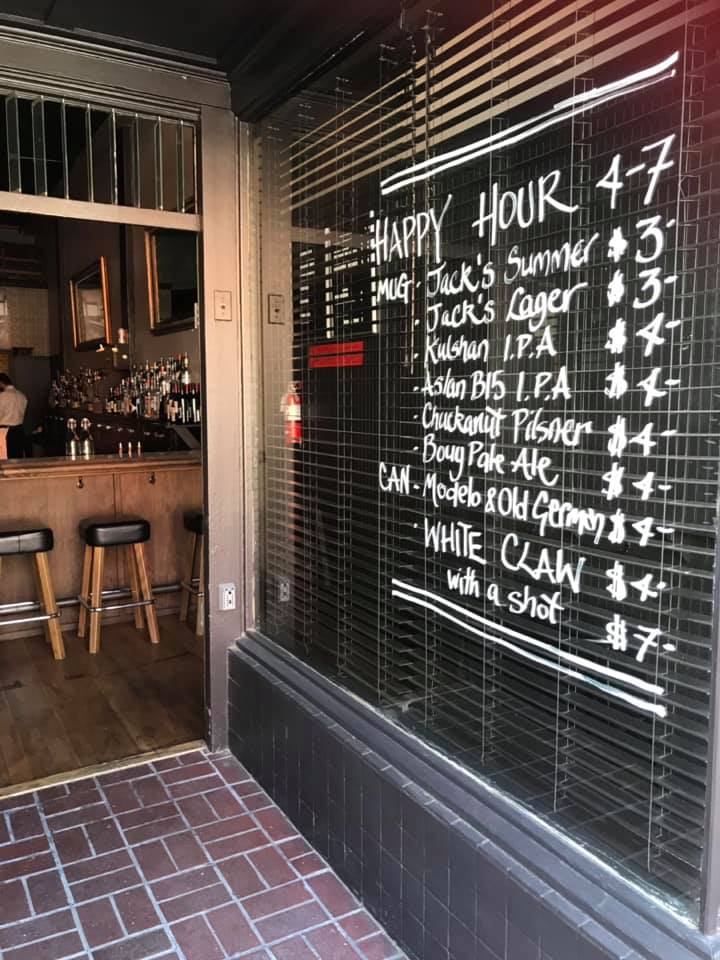 HAPPY HOUR 4-7
MUG - Jack's Summer $3-
· Jack's Lager $3-
· Kulshan I.P.A $4-
· Aslan B15 I.P.A $4-
· Chuckanut Pilsner $4-
· Boug Pale Ale $4-
CAN - Modelo & Old German $4-
· WHITE CLAW $4-
with a shot $7-